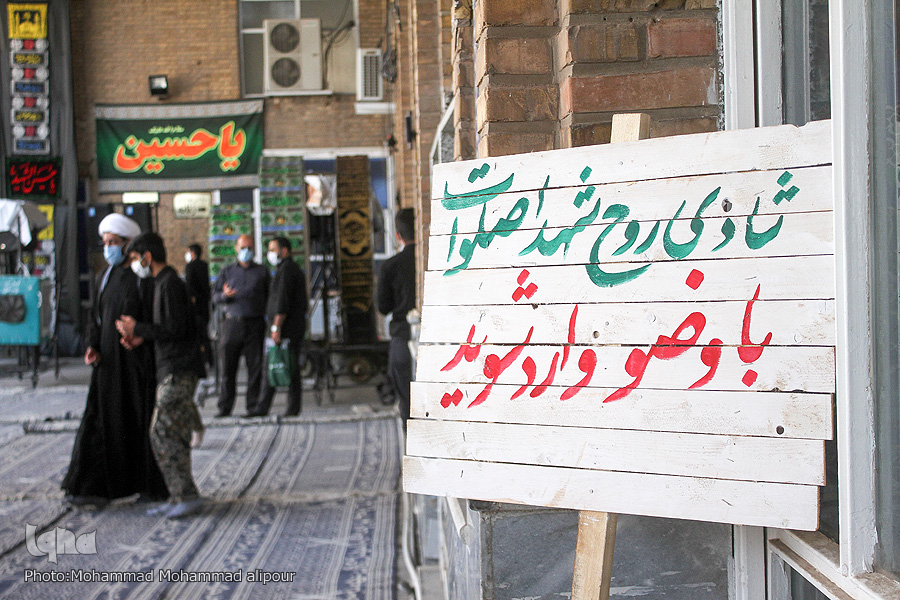 یاحسین
حسین الشهید
شادی روح شهدا صلوات
با وضو وارد شوید
iqna
Photo:Mohammad Mohammad alipour